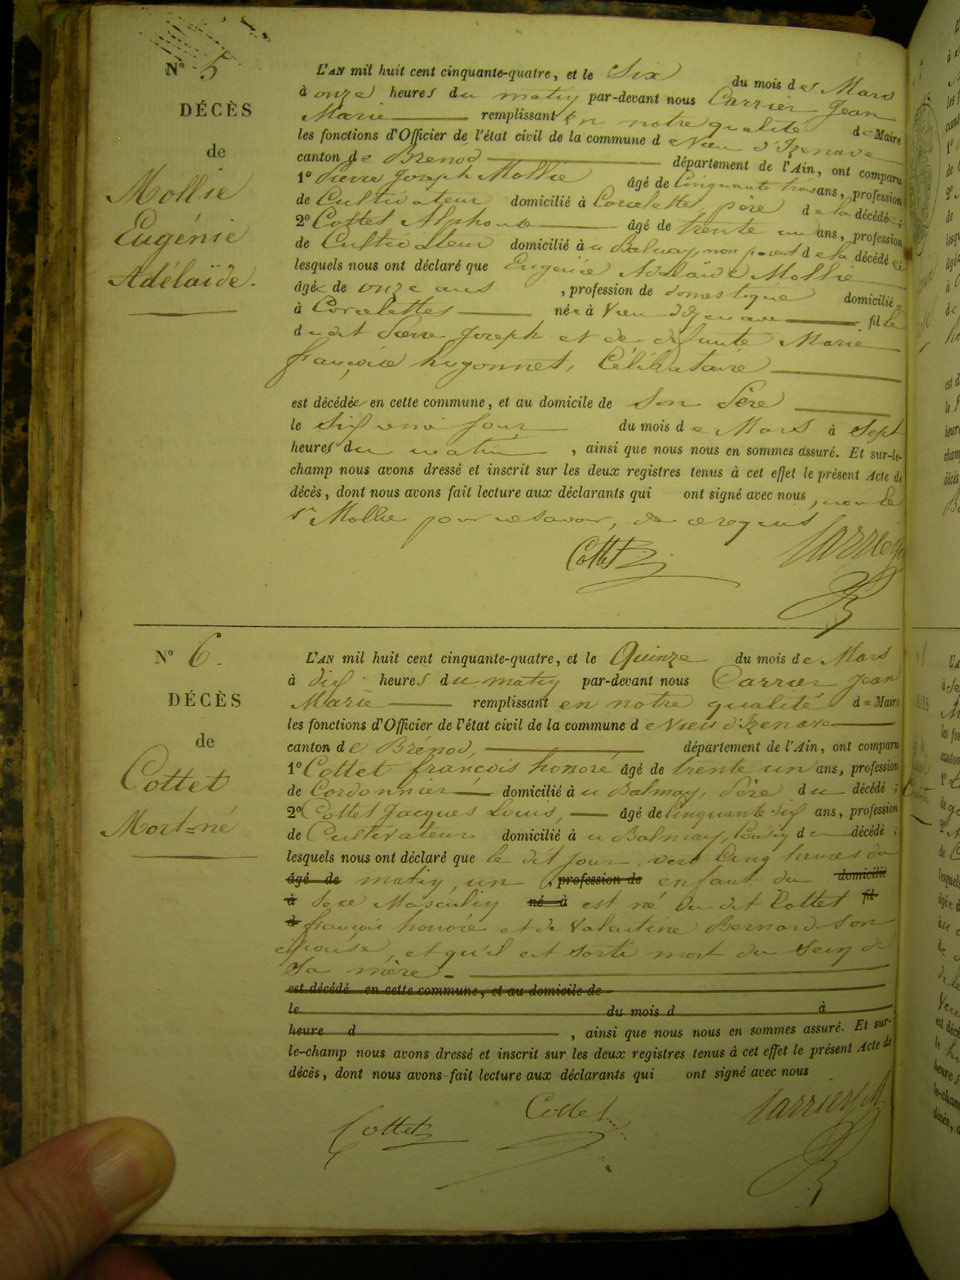 N° 5
DÉCÈS
de
Mollie
Eugénie
Adélaïde.
L'AN mil huit cent cinquante-quatre, et le Six du mois de Mars
à onze heures du matin par-devant nous Carrier Jean
Marie remplissant en notre qualité de Maire
les fonctions d'Officier de l'état civil de la commune de Vieu d'Izenave
canton de Brenod département de l'Ain, ont comparu
1° Pierre Joseph Mollie âgé de Cinquante trois ans, profession
de Cultivateur domicilié à Corcelettes, père de la décédée ;
2° Cottet Alphonse âgé de trente un ans, profession
de Cultivateur domicilié à u Balmay, non parent de la décédée ;
lesquels nous ont déclaré que Eugénie Adélaïde Mollie
âgée de onze ans , profession de domestique domiciliée
à Corcelettes née à Vieu d'Izenave fille
du dit Pierre Joseph et de défunte Marie
françoise hugonnet, Célibataire
est décédée en cette commune, et au domicile de son Père
le sixième jour du mois de Mars à sept
heures du matin , ainsi que nous nous en sommes assuré. Et sur-le-
champ nous avons dressé et inscrit sur les deux registres tenus à cet effet le présent Acte de
décès, dont nous avons fait lecture aux déclarants qui ont signé avec nous, non le
sr Mollie pour ne savoir, de ce requis
Cottet Carrier
N° 6.
DÉCÈS
de
Cottet
Mort-né
L'AN mil huit cent cinquante-quatre, et le Quinze du mois de Mars
à dix heures du matin par-devant nous Carrier Jean
Marie remplissant en notre qualité de Maire
les fonctions d'Officier de l'état civil de la commune de Vieu d'Izenave
canton de Brénod, département de l'Ain, ont comparu
1° Cottet françois honoré âgé de trente un ans, profession
de Cordonnier domicilié à u Balmay, Père du décédé ;
2° Cottet Jacques Louis, âgé de Cinquante six ans, profession
de Cultivateur domicilié à u Balmay, Cousin du décédé ;
lesquels nous ont déclaré que le dit jour, vers Cinq heures du
âgé de matin, un , profession de enfant du domicilié
à sexe Masculin né à est né du dit Cottet fil
d françois honoré et de Valentine Bernard son
épouse, et qu'il est sorti mort du sein de
Sa mère.
est décédé en cette commune, et au domicile de
le du mois d à
heure d , ainsi que nous nous en sommes assuré. Et sur-
le-champ nous avons dressé et inscrit sur les deux registres tenus à cet effet le présent Acte de
décès, dont nous avons fait lecture aux déclarants qui ont signé avec nous
Cottet Cottet Carrier